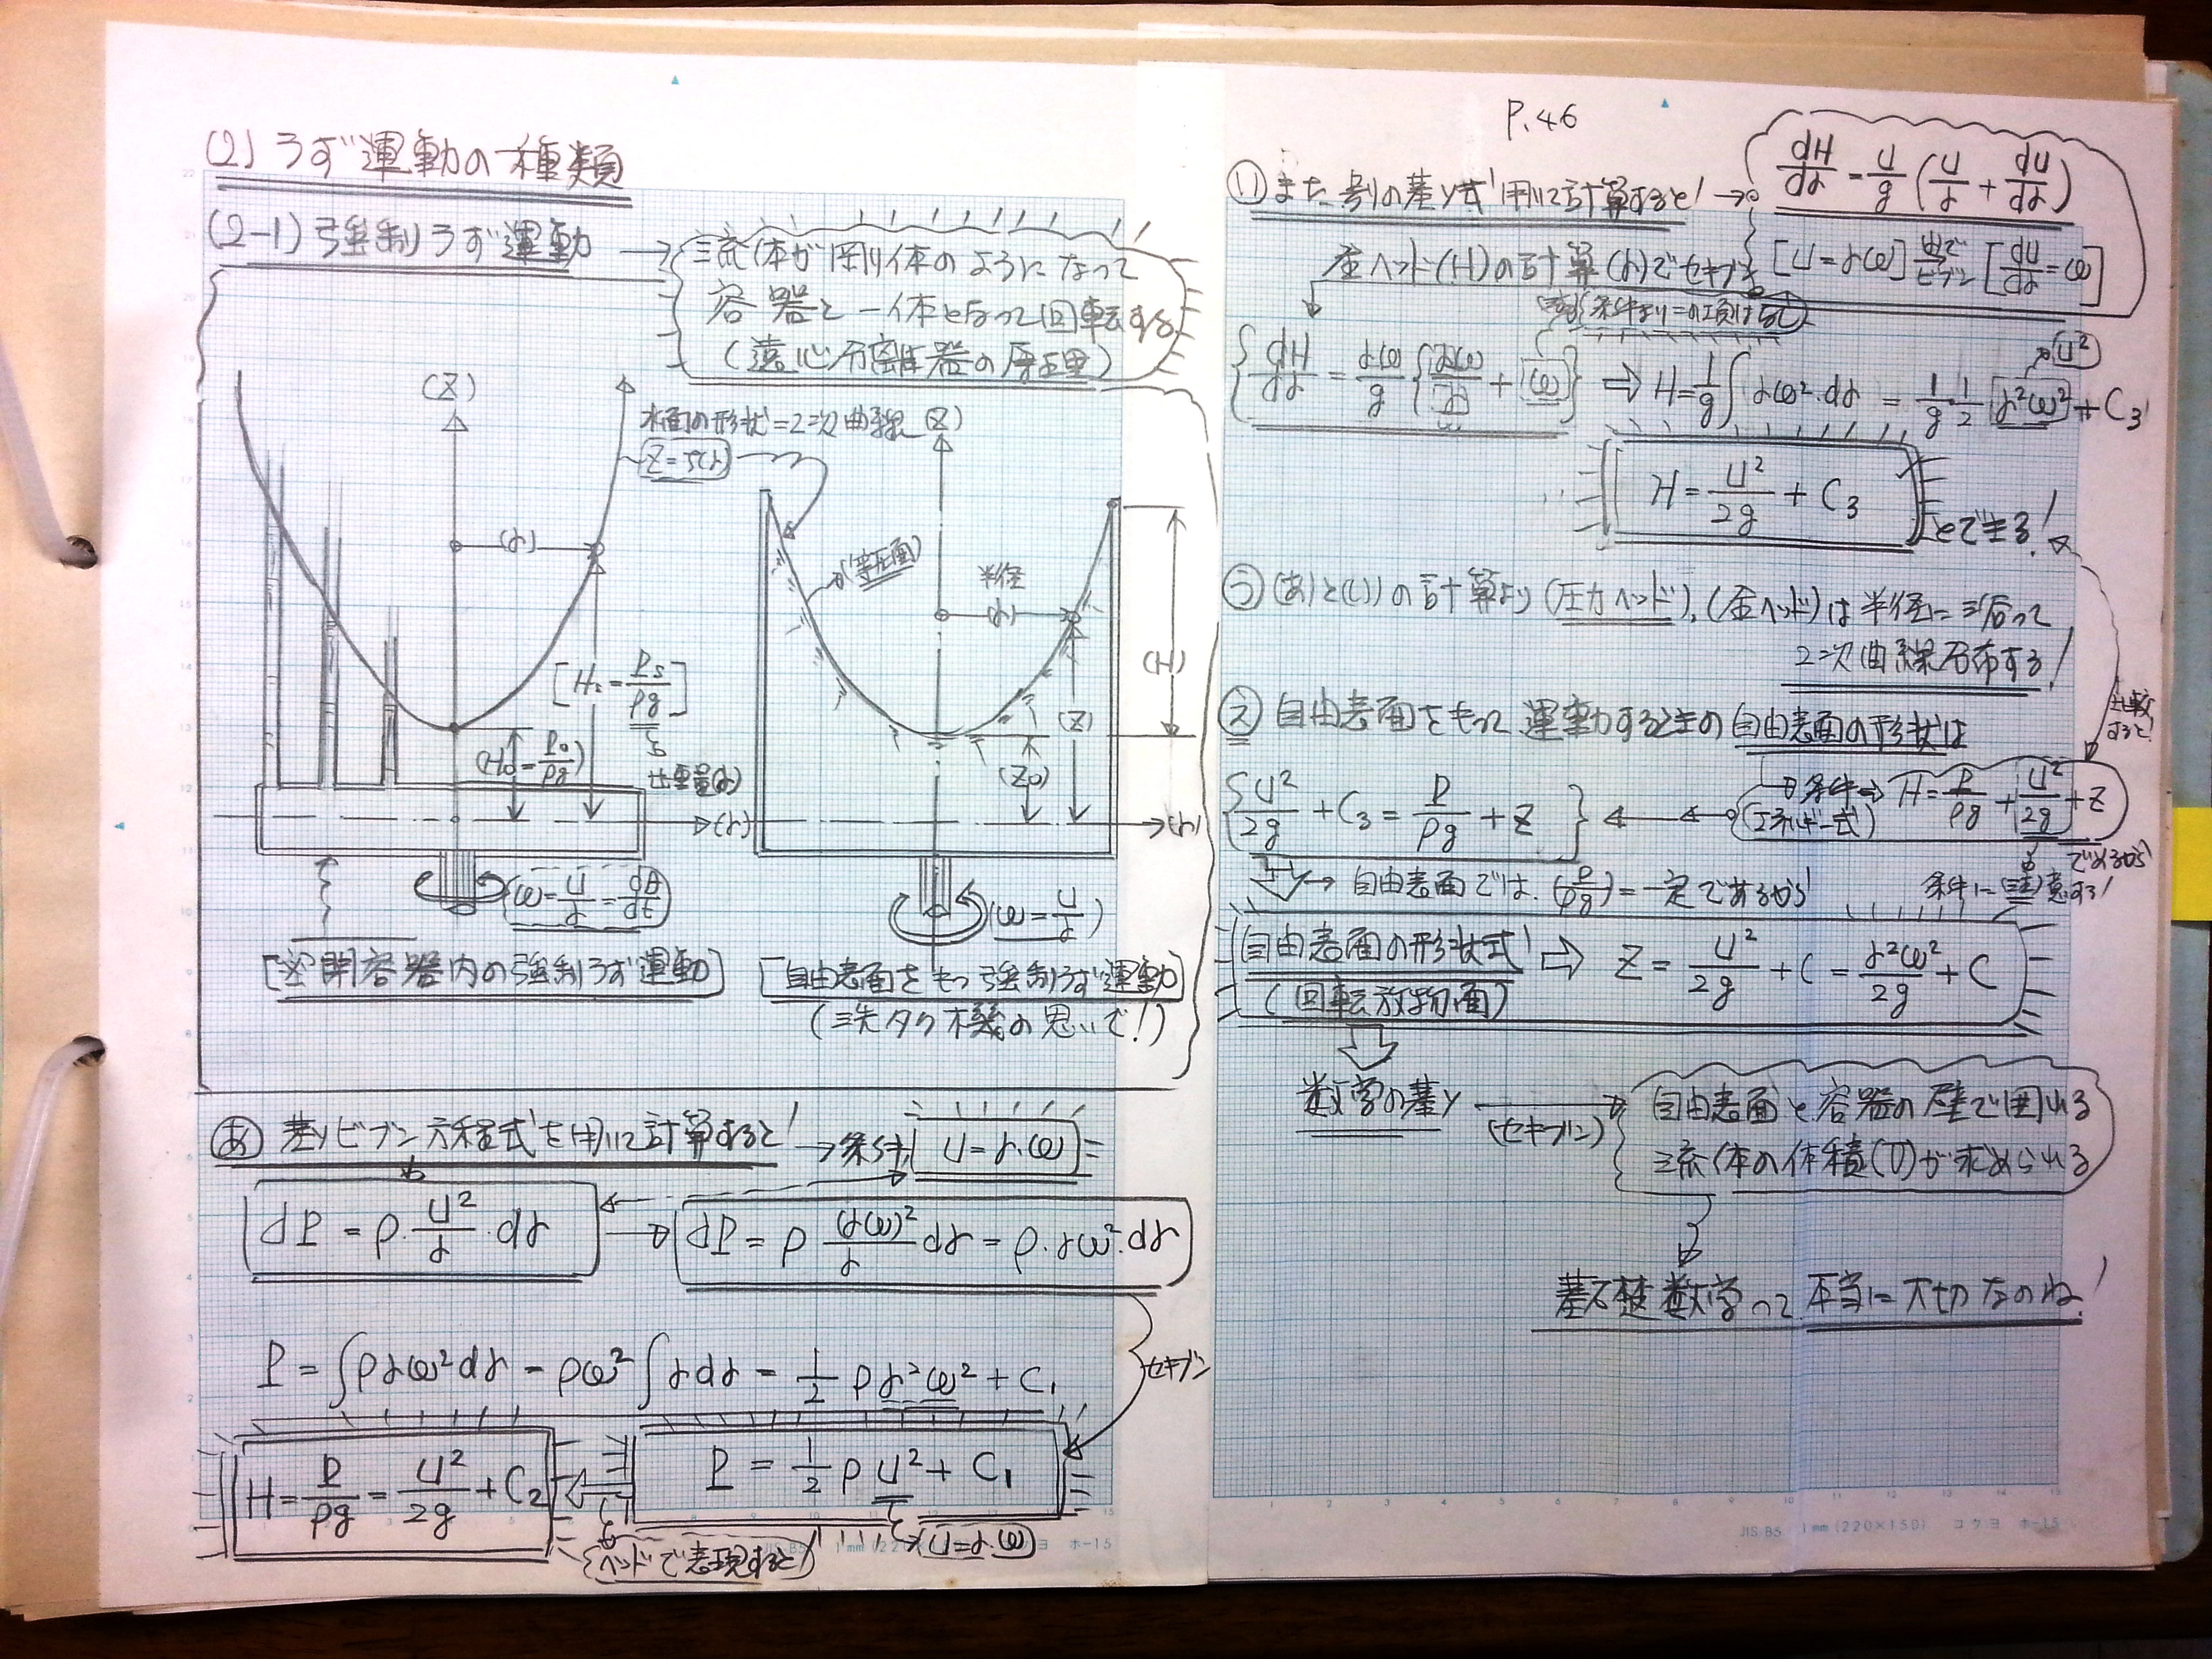 (2) うず運動の種類
(2-1) 強制うず運動 → 流体が剛体のようになって
容器と一体となって回転する
(遠心分離器の原理)
(Z)
水面の形状=2次曲線 (Z)
Z=f(r)
(r)
(等圧面)
半径
(r)
(H)
[Hs=Ps/ρg]
(H0=P0/ρg)
比重量(γ)
(Z)
(Z0)
(r)
(r)
(ω=U/r=dθ/dt)
(ω=U/r)
[密閉容器内の強制うず運動] [自由表面をもつ強制うず運動]
(洗タク機の思いで!)
あ 基ソビブン方程式を用いて計算すると! → 条件 U=r・ω
dP=ρ・U²/r・dr → dP=ρ (rω)²/r dr=ρ・rω²・dr
P=∫ρrω²dr=ρω²∫rdr=1/2 ρr²ω²+C₁
セキブン
H=P/ρg=U²/2g+C₂ ⇐ P=1/2 ρU²+C₁
ヘッドで表現すると U=r・ω
P.46
い また別の基ソ式用いて計算すると! → dH/dr=U/g (U/r+dU/dr)
全ヘッド(H)の計算(r)でセキブン [U=rω] rでビブン [dU/dr=ω]
{dH/dr=rω/g {rω/r+ω}} ⇒ H=1/g∫rω²・dr=1/g・1/2 r²ω²+C₃
U²
H=U²/2g+C₃ とできる!
う (あ)と(い)の計算より(圧力ヘッド),(全ヘッド)は半径に沿って
2次曲線分布する!
え 自由表面をもって運動するときの自由表面の形状は
比較すると!
{U²/2g+C₃=P/ρg+Z} ← 条件→ H=P/ρg+U²/2g+Z
(エネルギー式)
であるから
→ 自由表面では(P/ρg)=一定であるから 条件に注意する!
自由表面の形状式 ⇒ Z=U²/2g+C=r²ω²/2g+C
(回転放物面)
数学の基ソ → 自由表面と容器の壁で囲れる
(セキブン) 流体の体積(V)が求められる
基礎数学って本当に大切なのね!
JIS-B5 1mm (220×150) コクヨ ホ-15